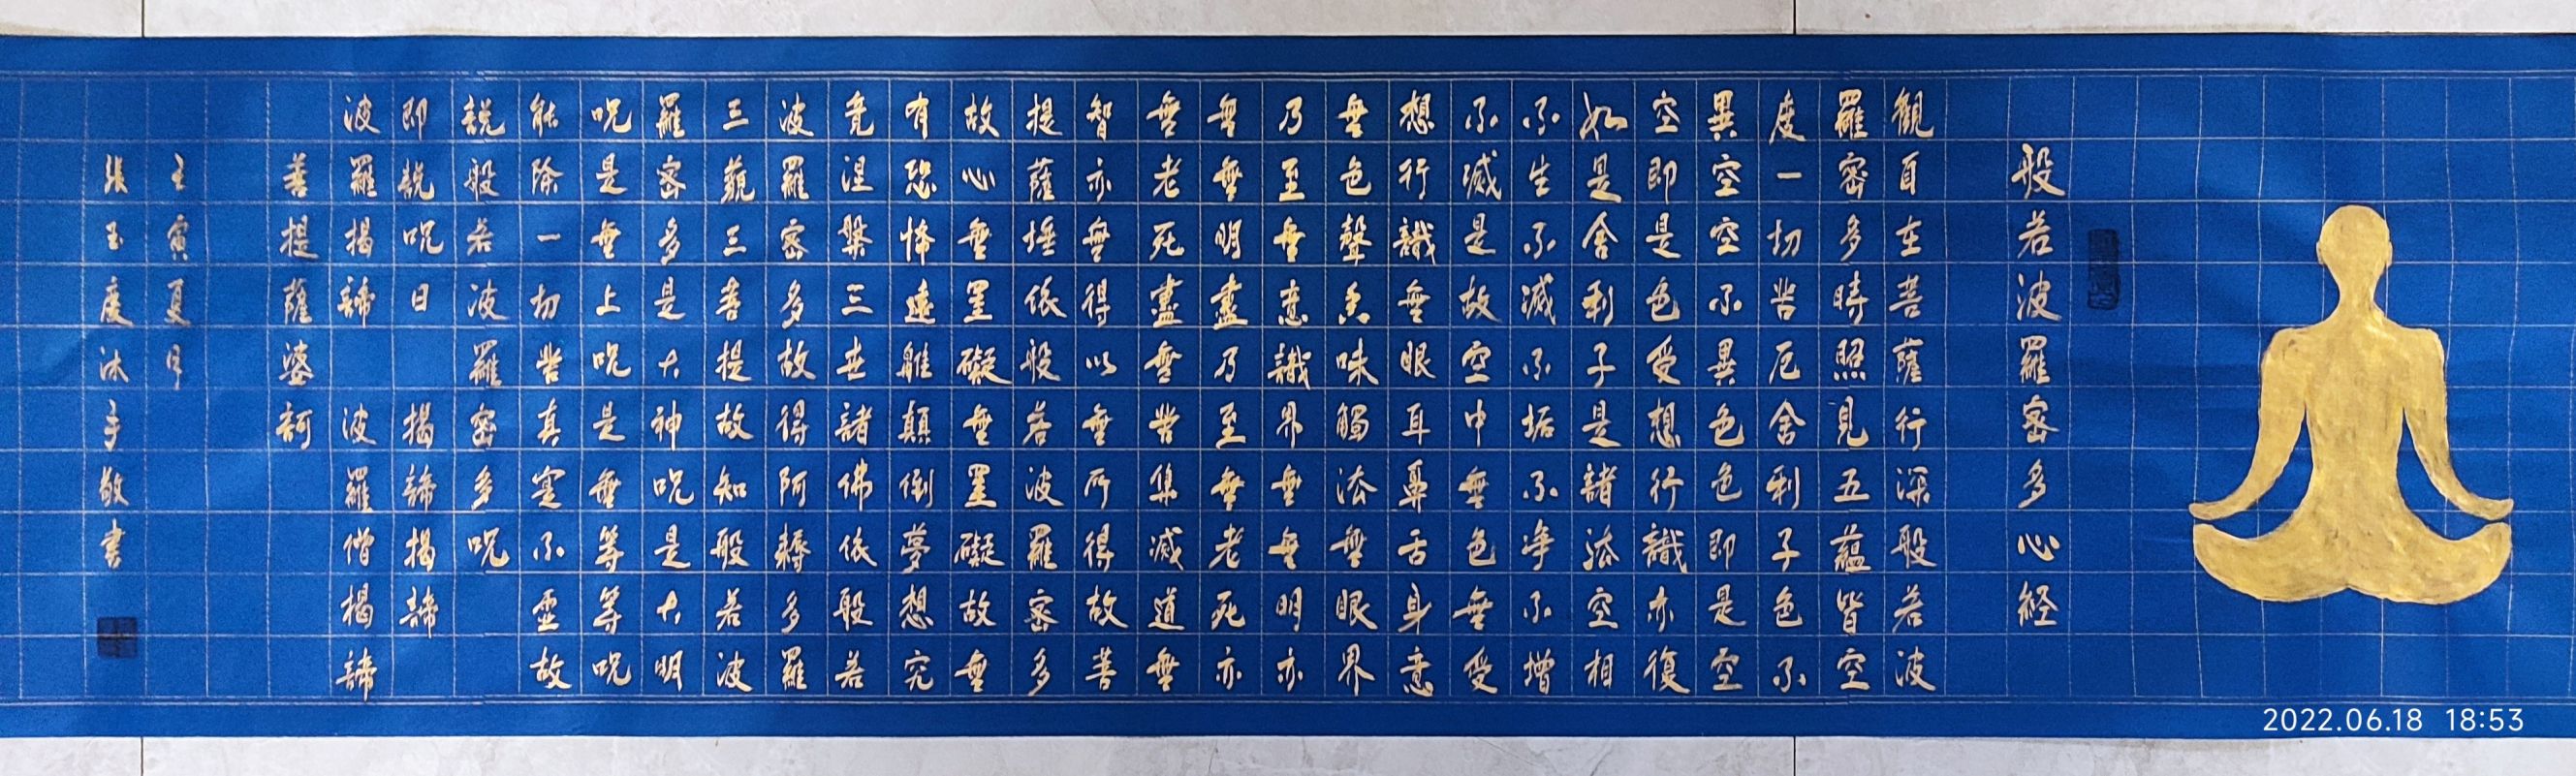 般若波羅密多心経
觀自在菩薩行深般若波
羅密多時照見五蘊皆空
度一切苦厄舍利子色不
異空空不異色色即是空
空即是色受想行識亦復
如是舍利子是諸法空相
不生不滅不垢不净不增
不減是故空中無色無受
想行識無眼耳鼻舌身意
無色聲香味觸法無眼界
乃至無意識界無無明亦
無無明盡乃至無老死亦
無老死盡無苦集滅道無
智亦無得以無所得故菩
提薩埵依般若波羅密多
故心無罣礙無罣礙故無
有恐怖遠離顛倒夢想究
竟涅槃三世諸佛依般若
波羅密多故得阿耨多羅
三藐三菩提故知般若波
羅密多是大神呪是大明
呪是無上呪是無等等呪
能除一切苦真實不虛故
說般若波羅密多呪
即說呪曰 揭諦揭諦
波羅揭諦 波羅僧揭諦
菩提薩婆訶
壬寅夏月
張玉慶沐手敬書
2022.06.18 18:53